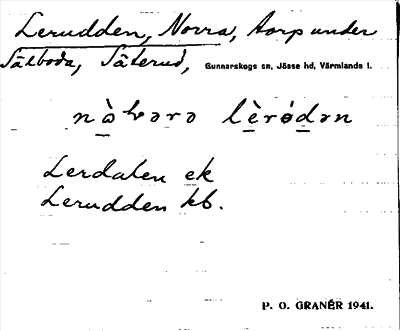 Lerudden, Norra, torp under
Sälboda, Säterud, Gunnarskogs sn, Jösse hd, Värmlands l.
nò̱𝑣ərə lè̱ró̱dən
Lerdalen ek
Lerudden kb.
P. O. GRANÉR 1941.